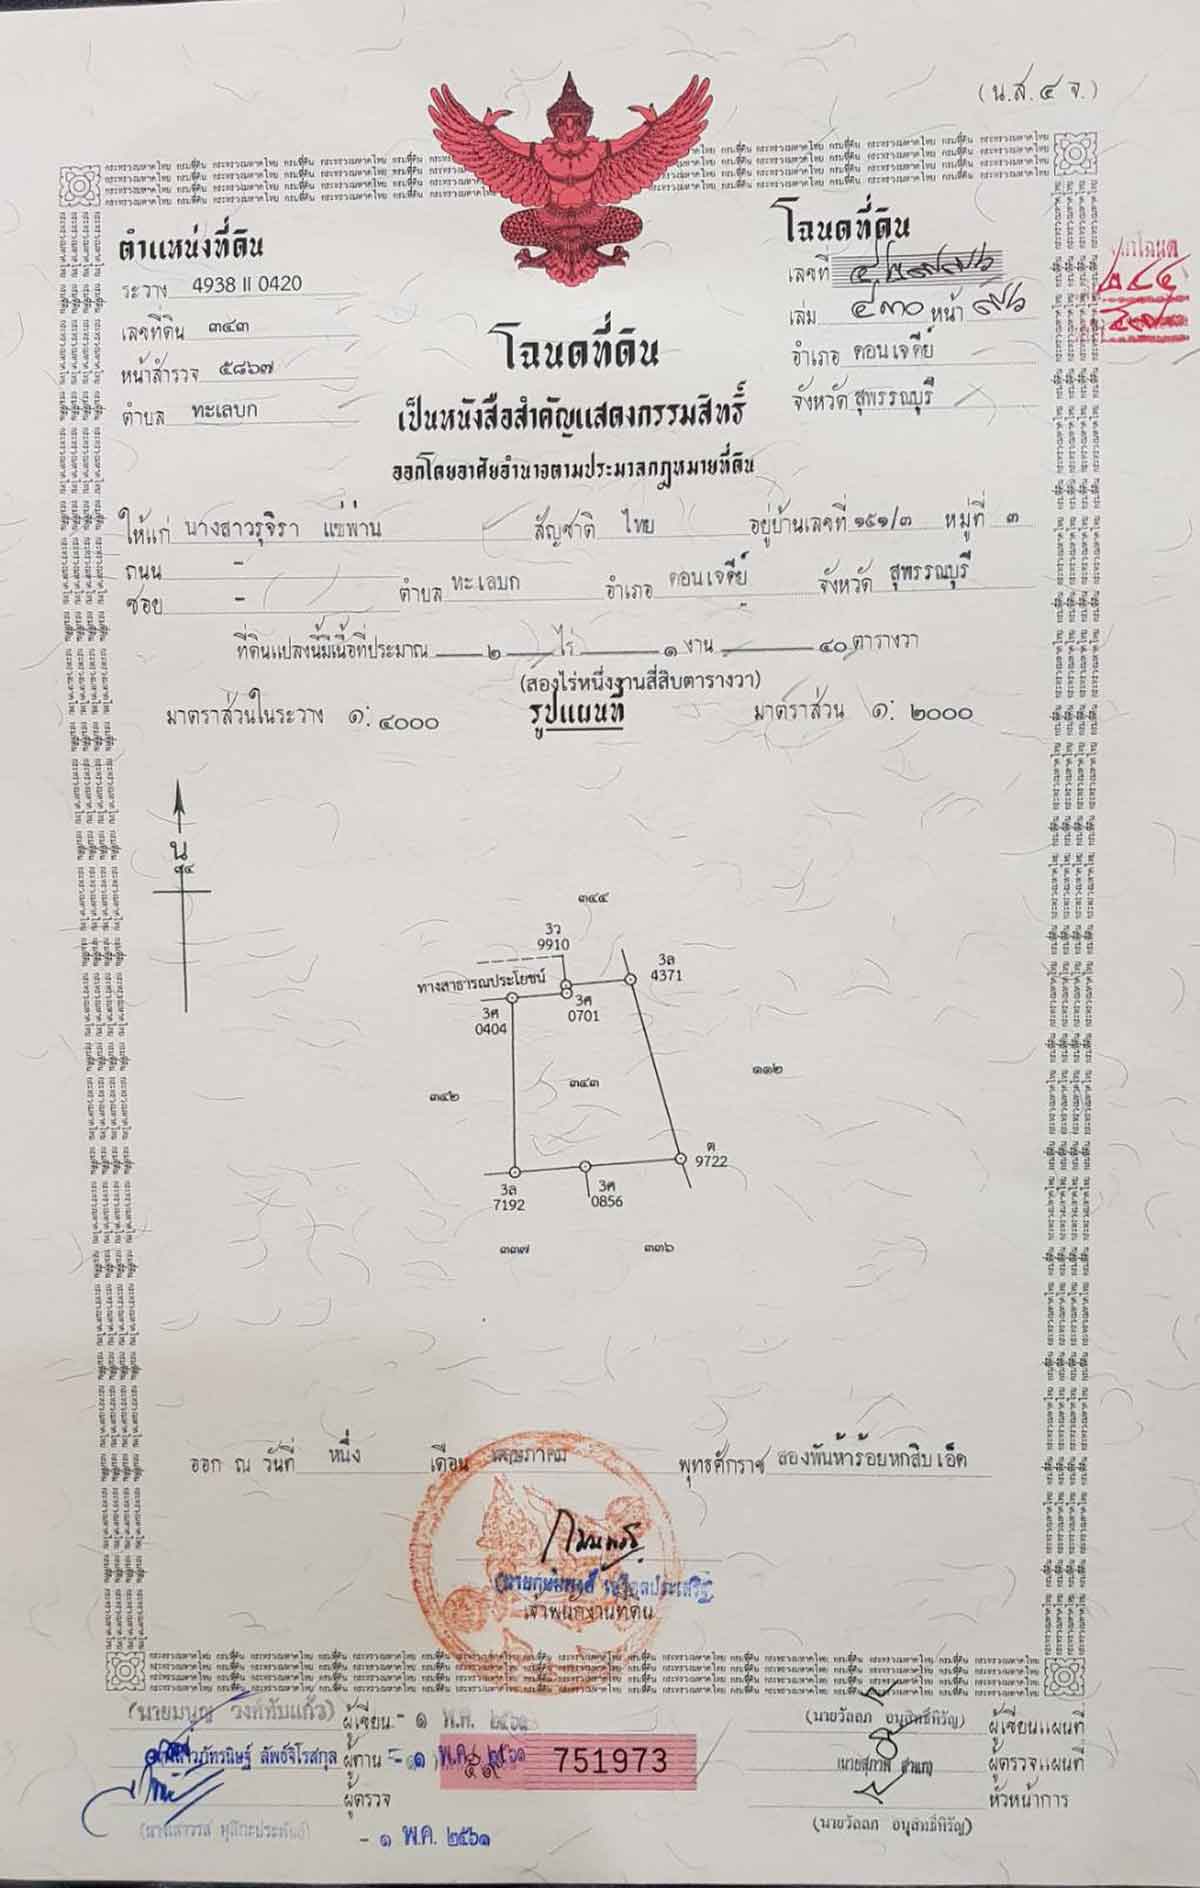 (น.ส.๔ จ.)
ตำแหน่งที่ดิน
ระวาง 4938 II 0420
เลขที่ดิน ๓๔๓
หน้าสำรวจ ๕๘๖๗
ตำบล ทะเลบก
โฉนดที่ดิน
เลขที่
เล่ม ๔๓๐ หน้า ๙๖
อำเภอ ดอนเจดีย์
จังหวัด สุพรรณบุรี
โฉนดที่ดิน
เป็นหนังสือสำคัญแสดงกรรมสิทธิ์
ออกโดยอาศัยอำนาจตามประมวลกฎหมายที่ดิน
ให้แก่ นางสาวรุจิรา แซ่พ่าน สัญชาติ ไทย อยู่บ้านเลขที่ ๑๕๑/๓ หมู่ที่ ๓
ถนน -
ซอย - ตำบล ทะเลบก อำเภอ ดอนเจดีย์ จังหวัด สุพรรณบุรี
ที่ดินแปลงนี้มีเนื้อที่ประมาณ ๒ ไร่ ๑ งาน ๔๐ ตารางวา
(สองไร่หนึ่งงานสี่สิบตารางวา)
มาตราส่วนในระวาง ๑: ๔๐๐๐ รูปแผนที่ มาตราส่วน ๑: ๒๐๐๐
น
๓๔๔
3ว
9910
3ล
4371
ทางสาธารณประโยชน์
3ศ
0404
3ศ
0701
๓๔๒
๓๔๓
๑๑๒
ต
9722
3ล
7192
3ศ
0856
๓๓๗
๓๓๖
ออก ณ วันที่ หนึ่ง เดือน พฤษภาคม พุทธศักราช สองพันห้าร้อยหกสิบเอ็ด
เจ้าพนักงานที่ดิน
ผู้เขียน - ๑ พ.ค. ๒๕๖๑
ผู้ทาน - ๑ พ.ค. ๒๕๖๑
751973
ผู้ตรวจ
- ๑ พ.ค. ๒๕๖๑
(นายวัลลภ อนุสิทธิ์หิรัญ) ผู้เขียนแผนที่
ผู้ตรวจแผนที่
หัวหน้าการ
(นายวัลลภ อนุสิทธิ์หิรัญ)